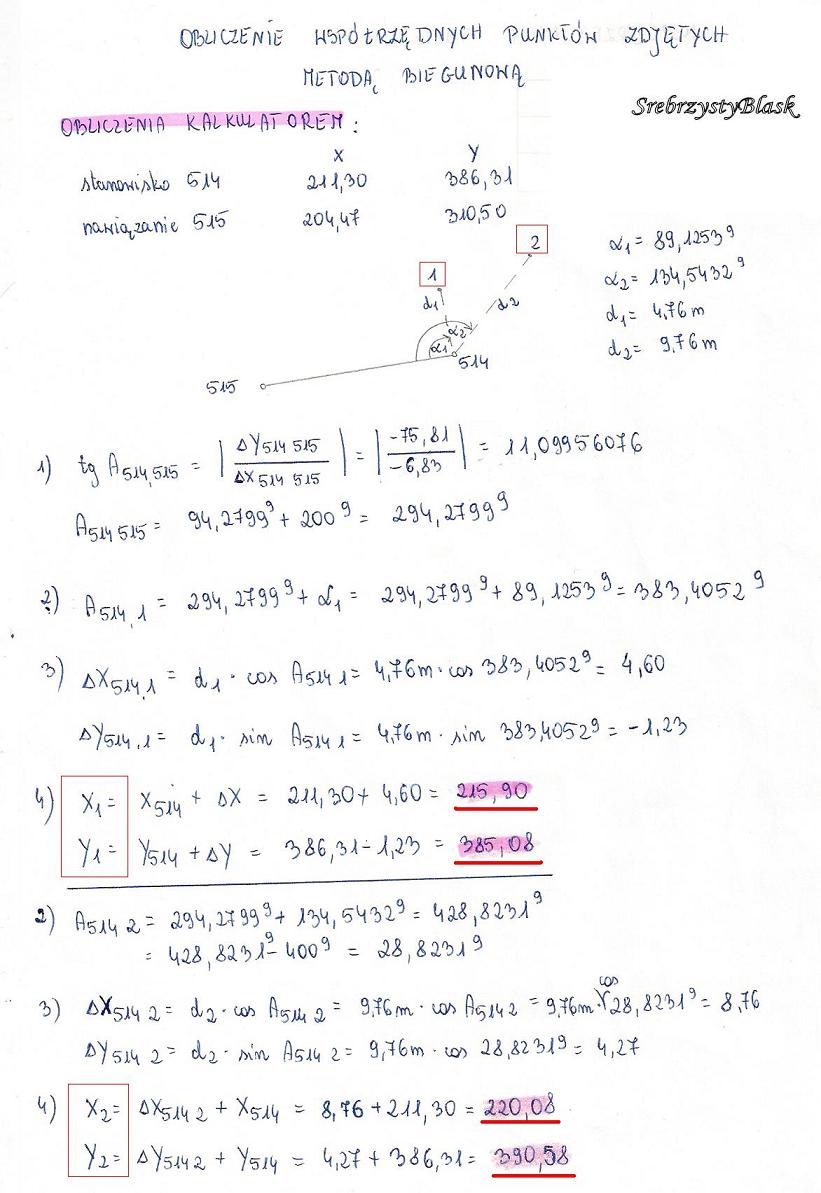 OBLICZENIE WSPÓŁRZĘDNYCH PUNKTÓW ZDJĘTYCH
METODĄ BIEGUNOWĄ
SrebrzystyBlask
OBLICZENIA KALKULATOREM:
X Y
stanowisko 514 211,30 386,31
nawiązanie 515 204,47 310,50
1
2
d1
d2
α1
α2
514
515
α1 = 89,1253g
α2 = 134,5432g
d1 = 4,76 m
d2 = 9,76 m
1) tg A514,515 = |ΔY514 515 / ΔX514 515| = |-75,81 / -6,83| = 11,09956076
A514 515 = 94,2799g + 200g = 294,2799g
2) A514,1 = 294,2799g + α1 = 294,2799g + 89,1253g = 383,4052g
3) ΔX514,1 = d1 · cos A514 1 = 4,76m · cos 383,4052g = 4,60
ΔY514,1 = d1 · sin A514 1 = 4,76m · sin 383,4052g = -1,23
4) X1 = X514 + ΔX = 211,30 + 4,60 = 215,90
Y1 = Y514 + ΔY = 386,31 - 1,23 = 385,08
2) A514 2 = 294,2799g + 134,5432g = 428,8231g
= 428,8231g - 400g = 28,8231g
3) ΔX514 2 = d2 · cos A514 2 = 9,76m · cos A514 2 = 9,76m · cos 28,8231g = 8,76
ΔY514 2 = d2 · sin A514 2 = 9,76m · cos 28,8231g = 4,27
4) X2 = ΔX514 2 + X514 = 8,76 + 211,30 = 220,08
Y2 = ΔY514 2 + Y514 = 4,27 + 386,31 = 390,58